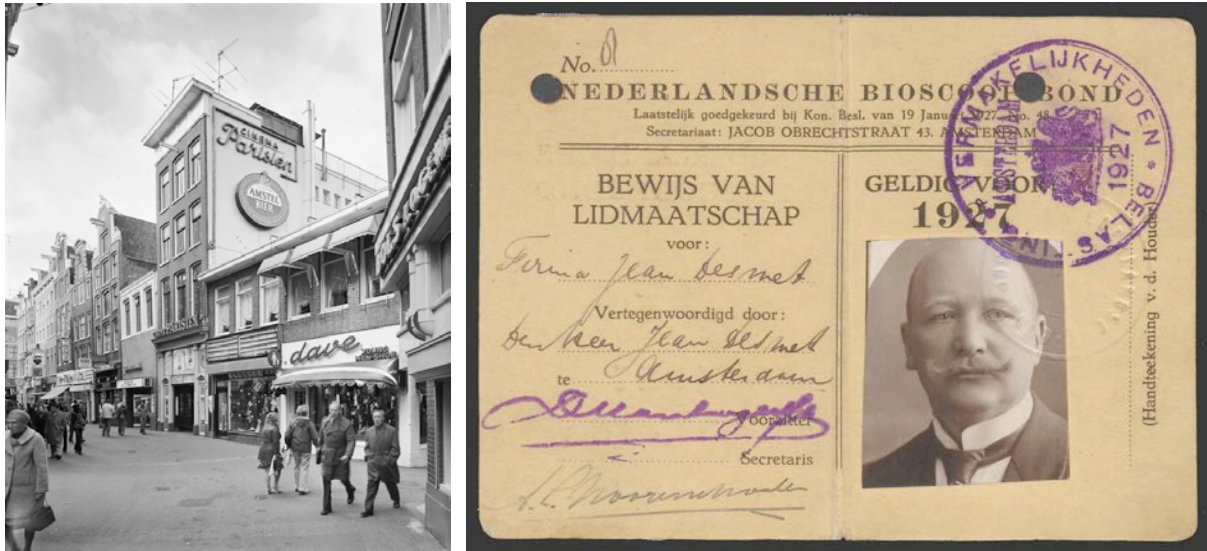 CINEMA
Parisien
AMSTEL
BIER
PARISIEN
dave
No. 8
NEDERLANDSCHE BIOSCOOP BOND
Laatstelijk goedgekeurd bij Kon. Besl. van 19 Januari 1927, No. 48
Secretariaat: JACOB OBRECHTSTRAAT 43, AMSTERDAM
BEWIJS VAN
LIDMAATSCHAP
voor:
Firma Jean Desmet
Vertegenwoordigd door:
Den heer Jean Desmet
te Amsterdam
Voorzitter
Secretaris
GELDIG VOOR
1927
(Handteekening v. d. Houder)
VERMAKELIJKHEDEN * BELAS
AMSTERDAM
1927